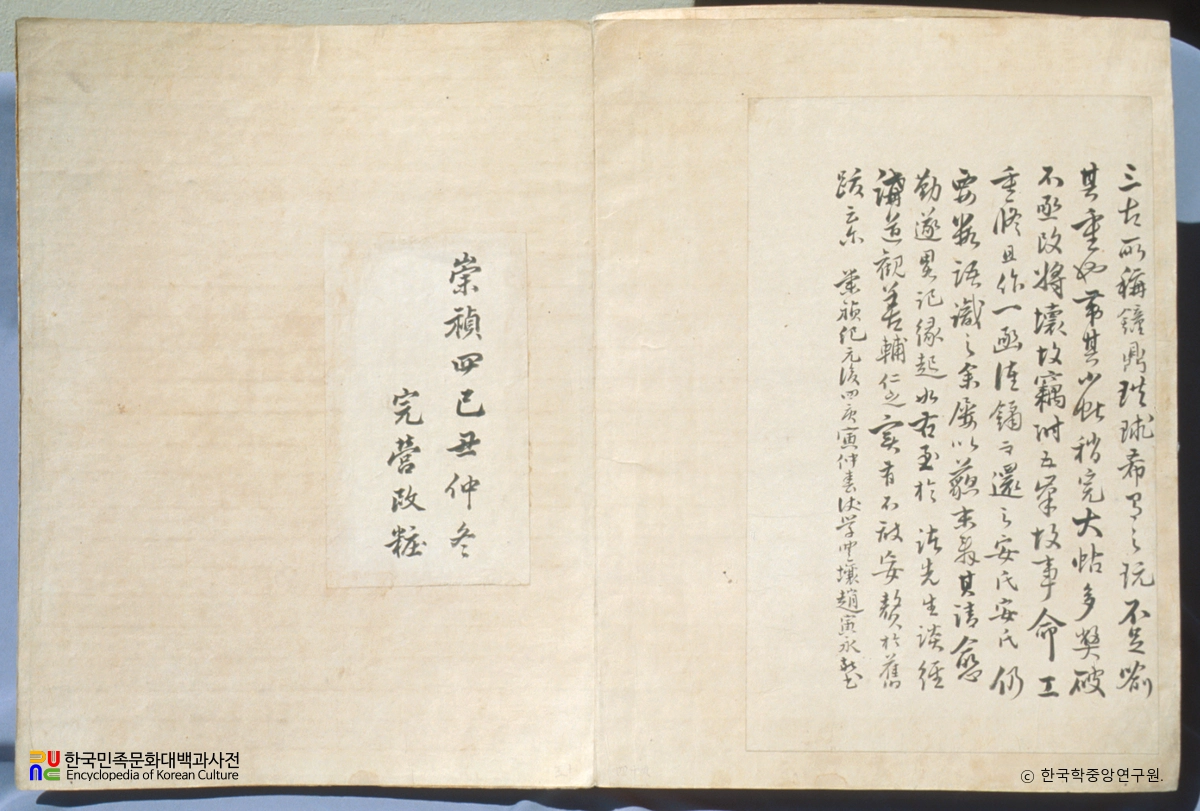 三古所稱鐘鼎珙球希有之玩不足喻
其重也第其小帖稍完大帖多獘破
不亟改將壞故竊附五峯故事命工
重修且作一函住鐍而還之安氏安氏仍
要數語識之余屢以辭未其請愈
勤遂畧記緣起如右至於諸先生談經
講道觀善輔仁之實有不敢妄贅於舊
跋云爾 崇禎紀元後四庚寅仲春後學豐壤趙寅永敬書
崇禎四己丑仲冬
完營改粧
한국민족문화대백과사전
Encyclopedia of Korean Culture
ⓒ 한국학중앙연구원.